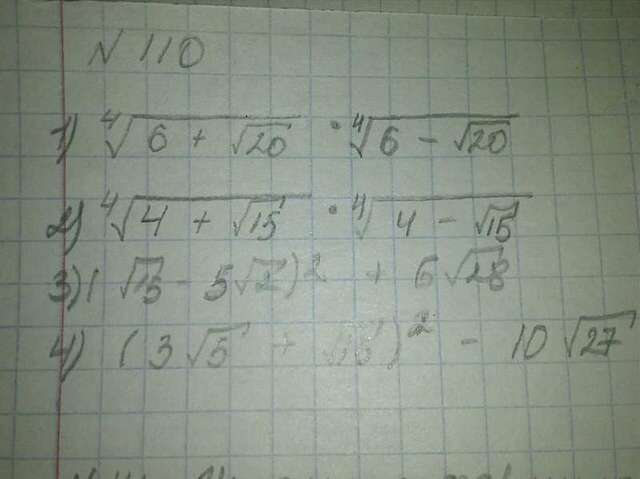 № 110
1) ∜(6 + √20) · ∜(6 - √20)
2) ∜(4 + √15) · ∜(4 - √15)
3) ( - 5√2)² + 6√28
4) (3√5 + )² - 10√27